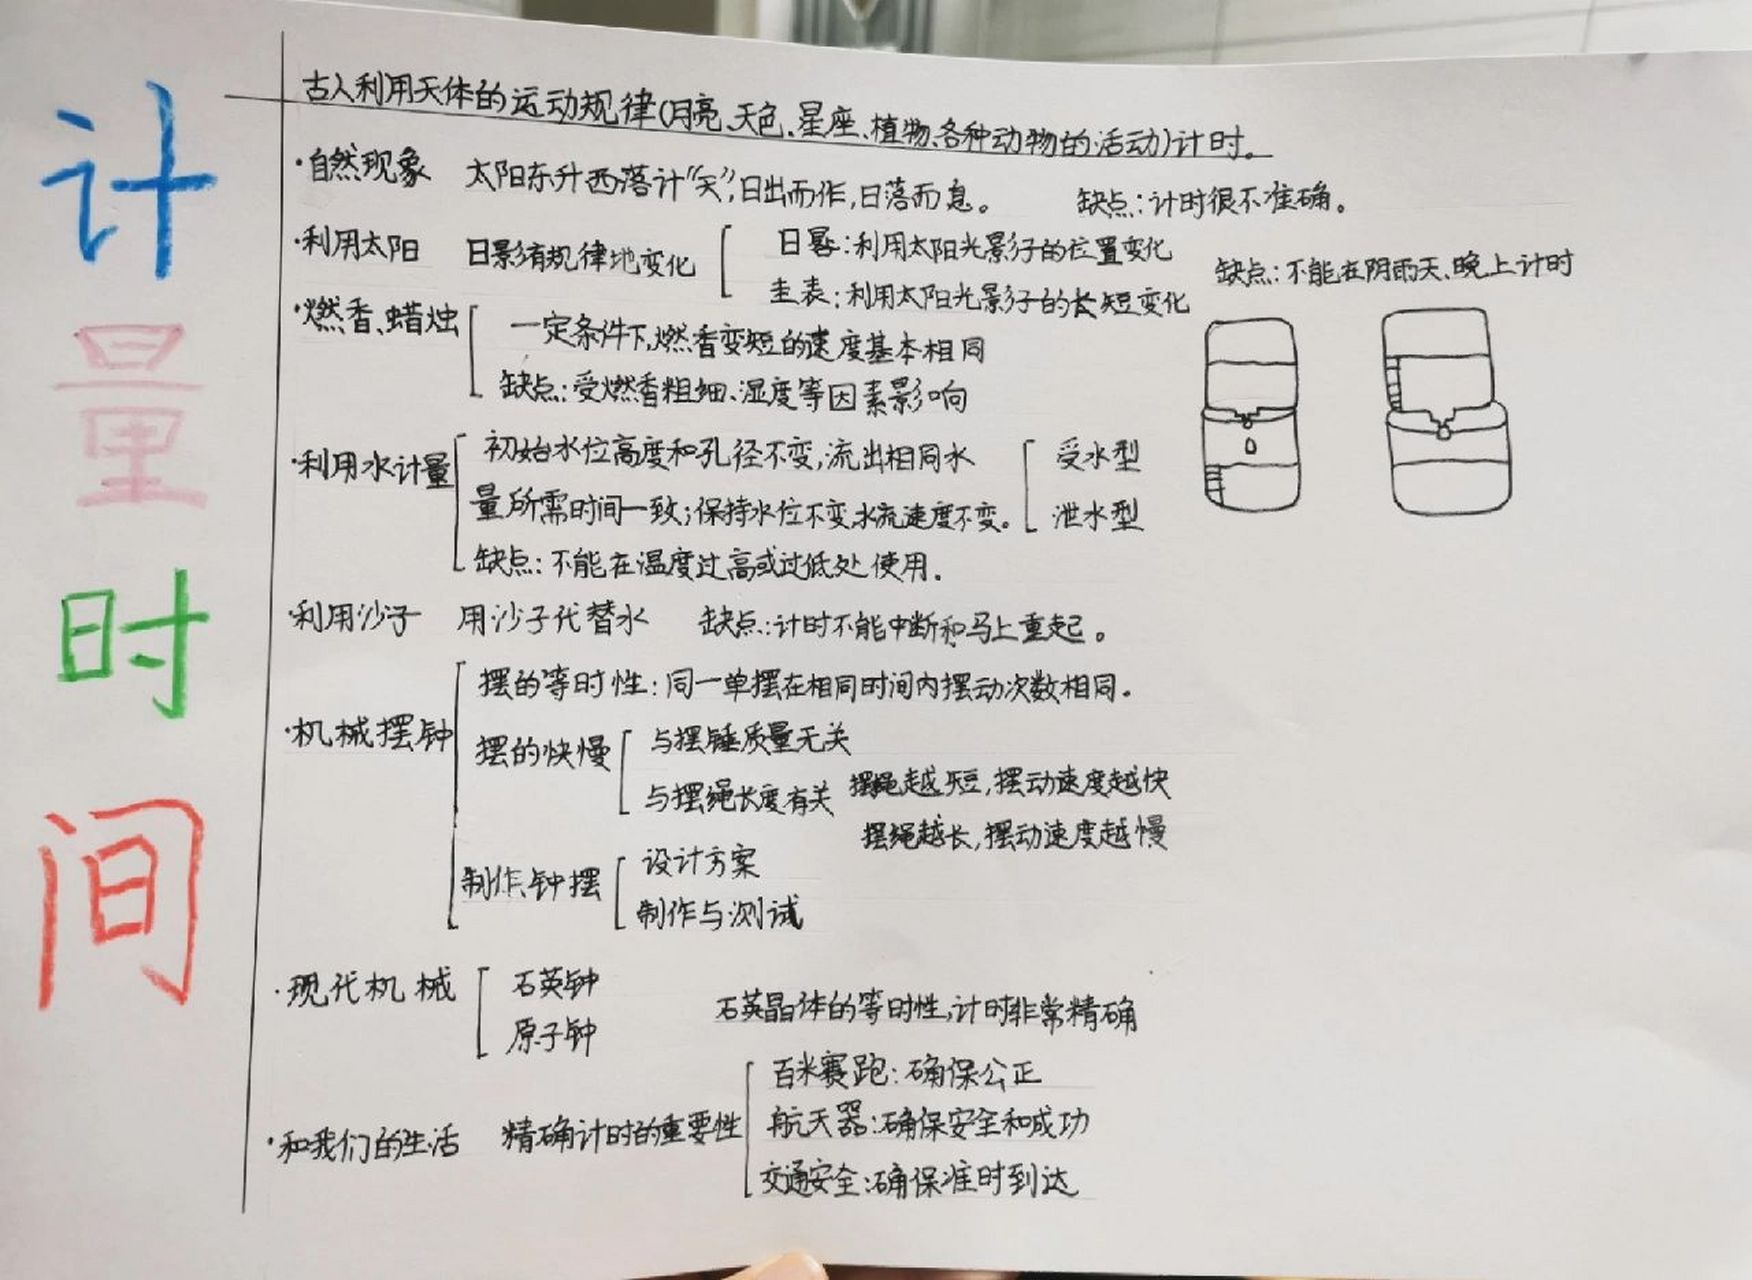 计
量
时
间
古人利用天体的运动规律(月亮、天色、星座、植物、各种动物的活动)计时。
·自然现象 太阳东升西落计“天”,日出而作,日落而息。 缺点:计时很不准确。
·利用太阳 日影有规律地变化
日晷:利用太阳光影子的位置变化
圭表:利用太阳光影子的长短变化
缺点:不能在阴雨天、晚上计时
·燃香、蜡烛
一定条件下,燃香变短的速度基本相同
缺点:受燃香粗细、湿度等因素影响
·利用水计量
初始水位高度和孔径不变,流出相同水
量所需时间一致;保持水位不变,水流速度不变。
受水型
泄水型
缺点:不能在温度过高或过低处使用.
·利用沙子 用沙子代替水 缺点:计时不能中断和马上重起。
·机械摆钟
摆的等时性:同一单摆在相同时间内摆动次数相同.
摆的快慢
与摆锤质量无关
与摆绳长度有关
摆绳越短,摆动速度越快
摆绳越长,摆动速度越慢
制作钟摆
设计方案
制作与测试
·现代机械
石英钟
原子钟
石英晶体的等时性,计时非常精确
·和我们的生活 精确计时的重要性
百米赛跑:确保公正
航天器:确保安全和成功
交通安全:确保准时到达